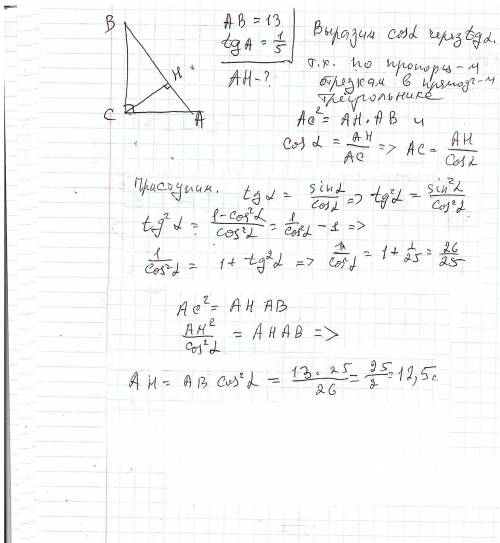 B
H
C
A
AB = 13
tg A = 1/5
AH - ?
Выразим cos α через tg α.
т.к. по пропорц-м
отрезкам в прямоуг-м
треугольнике
AC² = AH · AB и
cos α = AH/AC => AC = AH/cos α
tg α = sin α/cos α => tg² α = sin² α/cos² α
tg² α = 1-cos² α/cos² α = 1/cos² α - 1 =>
1/cos² α = 1 + tg² α => 1/cos² α = 1 + 1/25 = 26/25
AC² = AH AB
AH²/cos² α = AH AB =>
AH = AB cos² α = 13 · 25/26 = 25/2 = 12,5